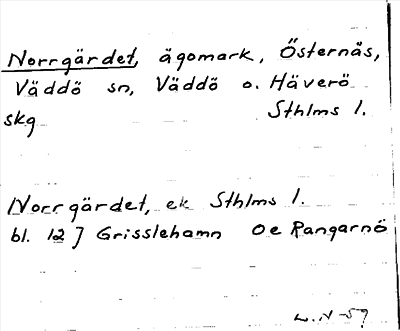 Norrgärdet, ägomark, Östernäs,
Väddö sn, Väddö o. Häverö
skg Sthlms l.
Norrgärdet, ek Sthlms l.
bl. 127 Grisslehamn Oe Rangarnö
L.N-59